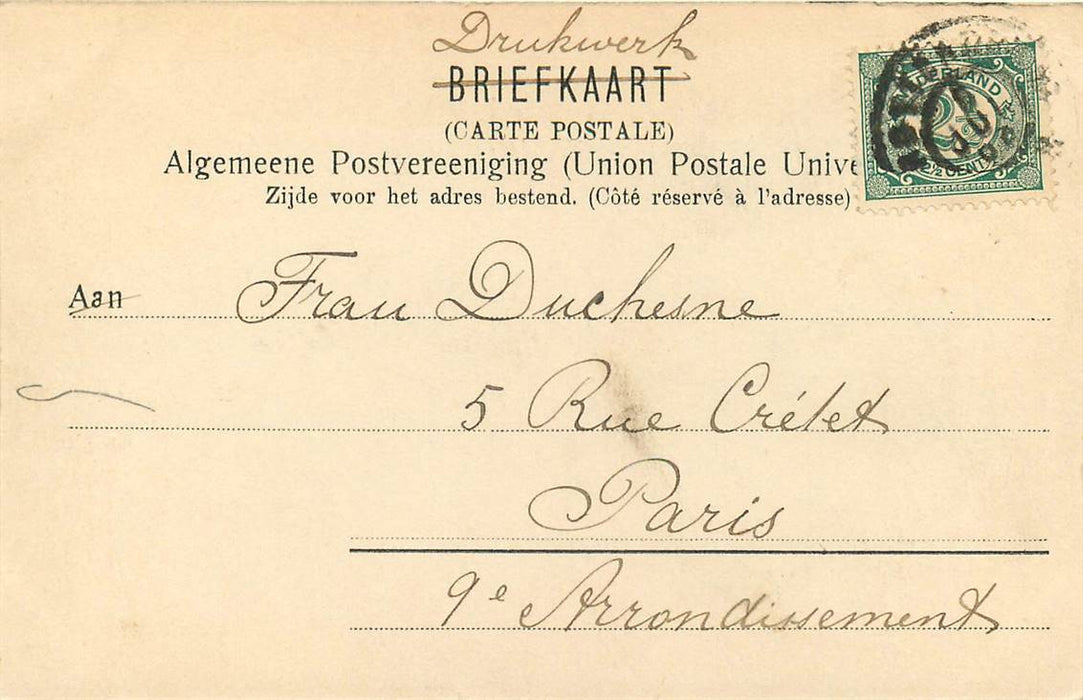 Drukwerk
BRIEFKAART
(CARTE POSTALE)
Algemeene Postvereeniging (Union Postale Unive
Zijde voor het adres bestend. (Côté réservé à l'adresse)
NEDERLAND
2½
2½ CENT
Aan Frau Duchesne
5 Rue Crétet
Paris
9e Arrondissement